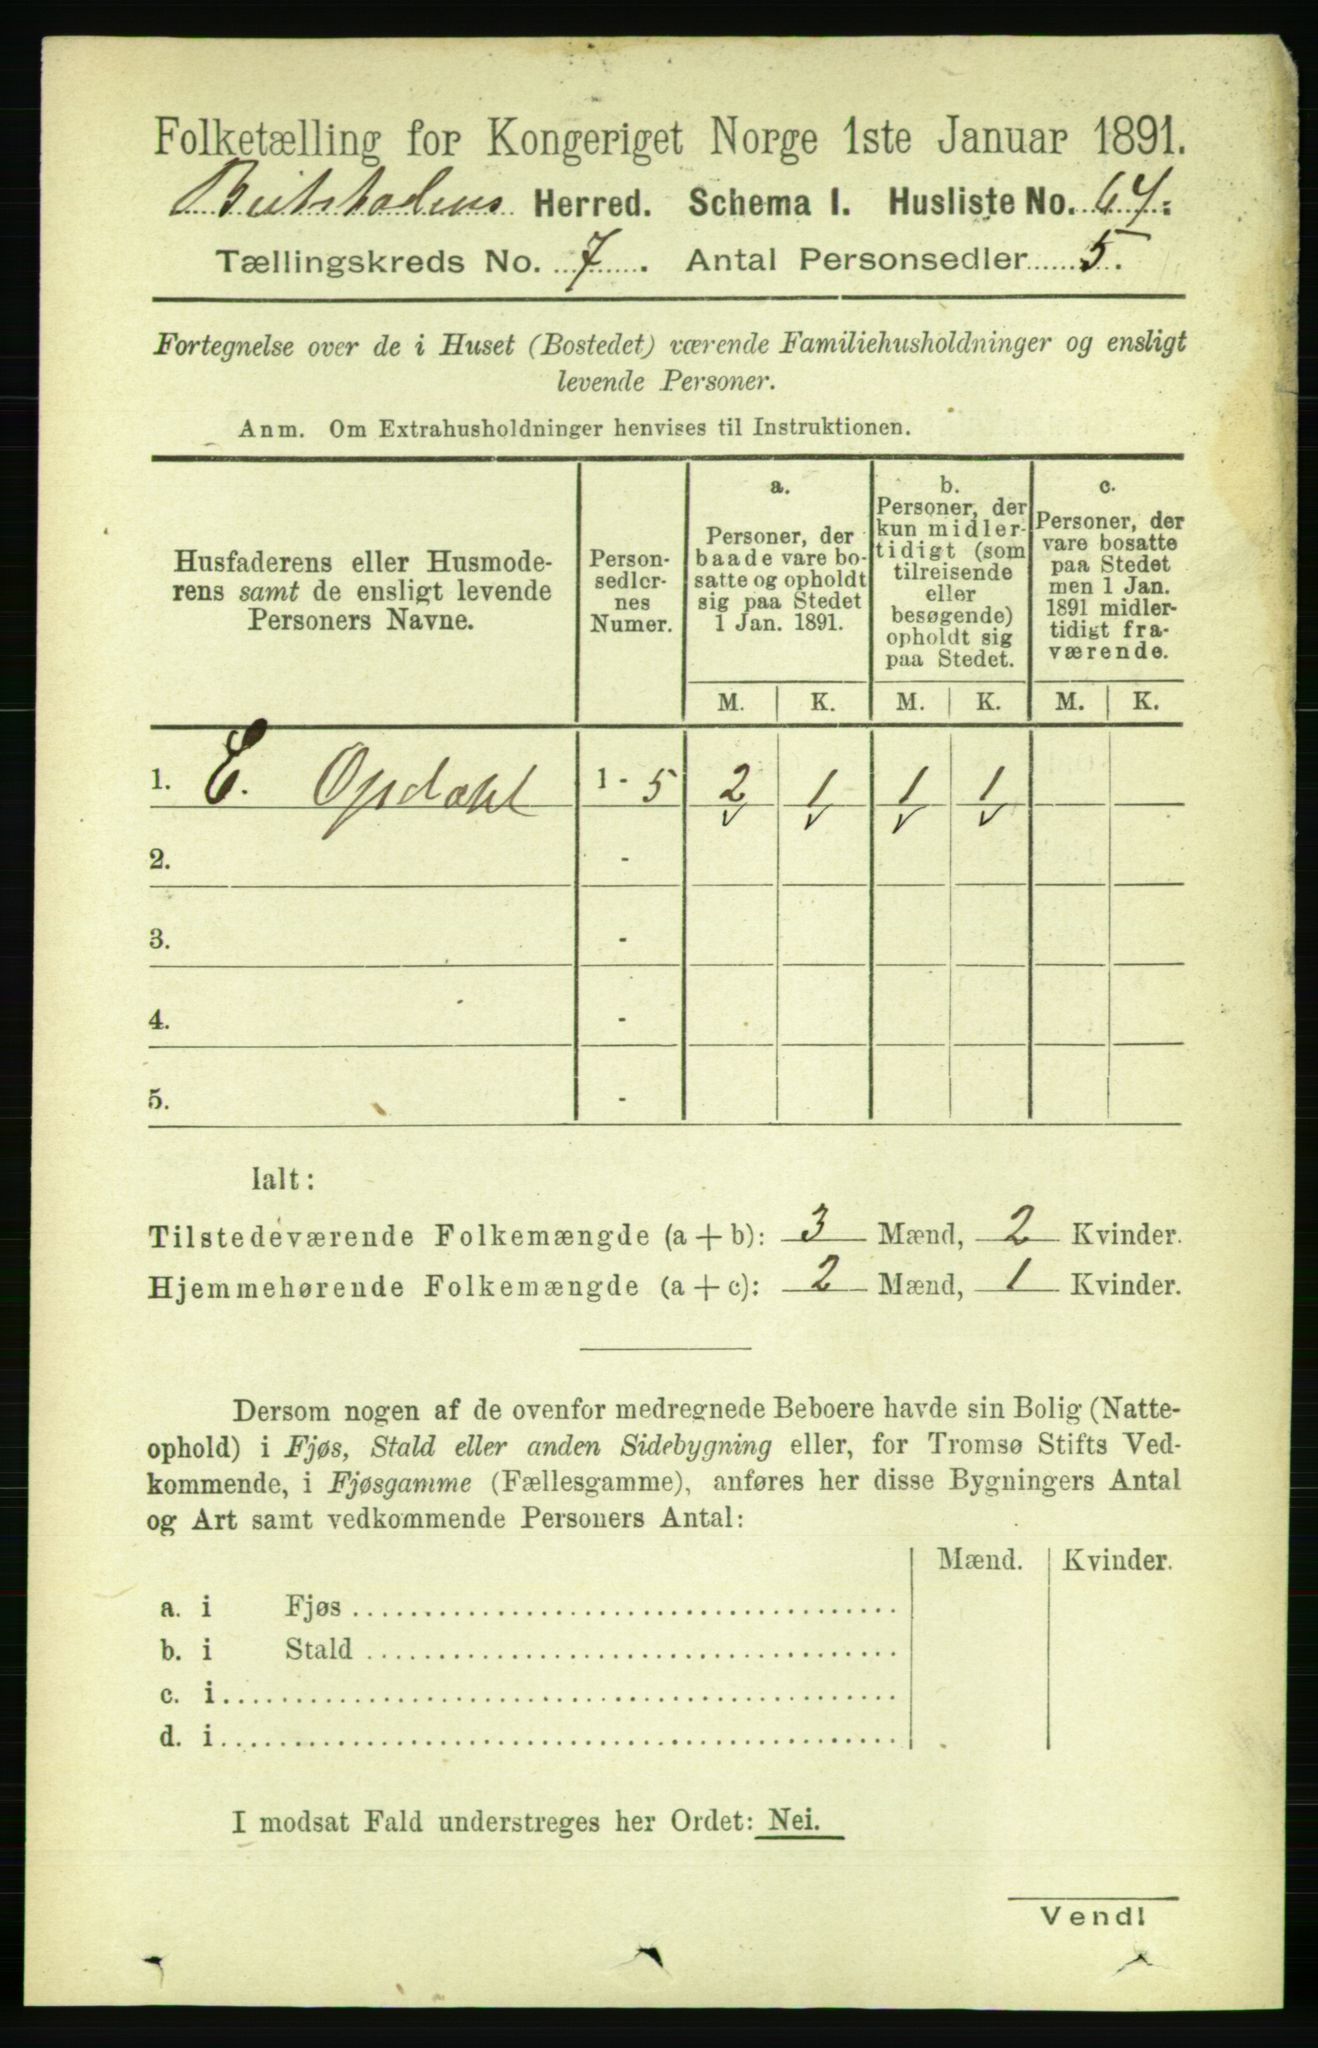 Folketælling for Kongeriget Norge 1ste Januar 1891.
Beitstadens Herred. Schema I. Husliste No. 64.
Tællingskreds No. 7. Antal Personsedler 5.
Fortegnelse over de i Huset (Bostedet) værende Familiehusholdninger og ensligt
levende Personer.
Anm. Om Extrahusholdninger henvises til Instruktionen.
Husfaderens eller Husmode-
rens samt de ensligt levende
Personers Navne.
Person-
sedler-
nes
Numer.
a.
Personer, der
baade vare bo-
satte og opholdt
sig paa Stedet
1 Jan. 1891.
b.
Personer, der
kun midler-
tidigt (som
tilreisende
eller
besøgende)
opholdt sig
paa Stedet.
c.
Personer, der
vare bosatte
paa Stedet
men 1 Jan.
1891 midler-
tidigt fra-
værende.
M. K. M. K. M. K.
1. E. Opdahl 1 - 5 2 1 1 1
2. -
3. -
4. -
5. -
Ialt:
Tilstedeværende Folkemængde (a + b): 3 Mænd, 2 Kvinder.
Hjemmehørende Folkemængde (a + c): 2 Mænd, 1 Kvinder.
Dersom nogen af de ovenfor medregnede Beboere havde sin Bolig (Natte-
ophold) i Fjøs, Stald eller anden Sidebygning eller, for Tromsø Stifts Ved-
kommende, i Fjøsgamme (Fællesgamme), anføres her disse Bygningers Antal
og Art samt vedkommende Personers Antal:
Mænd. Kvinder.
a. i Fjøs
b. i Stald
c. i
d. i
I modsat Fald understreges her Ordet: Nei.
Vend!